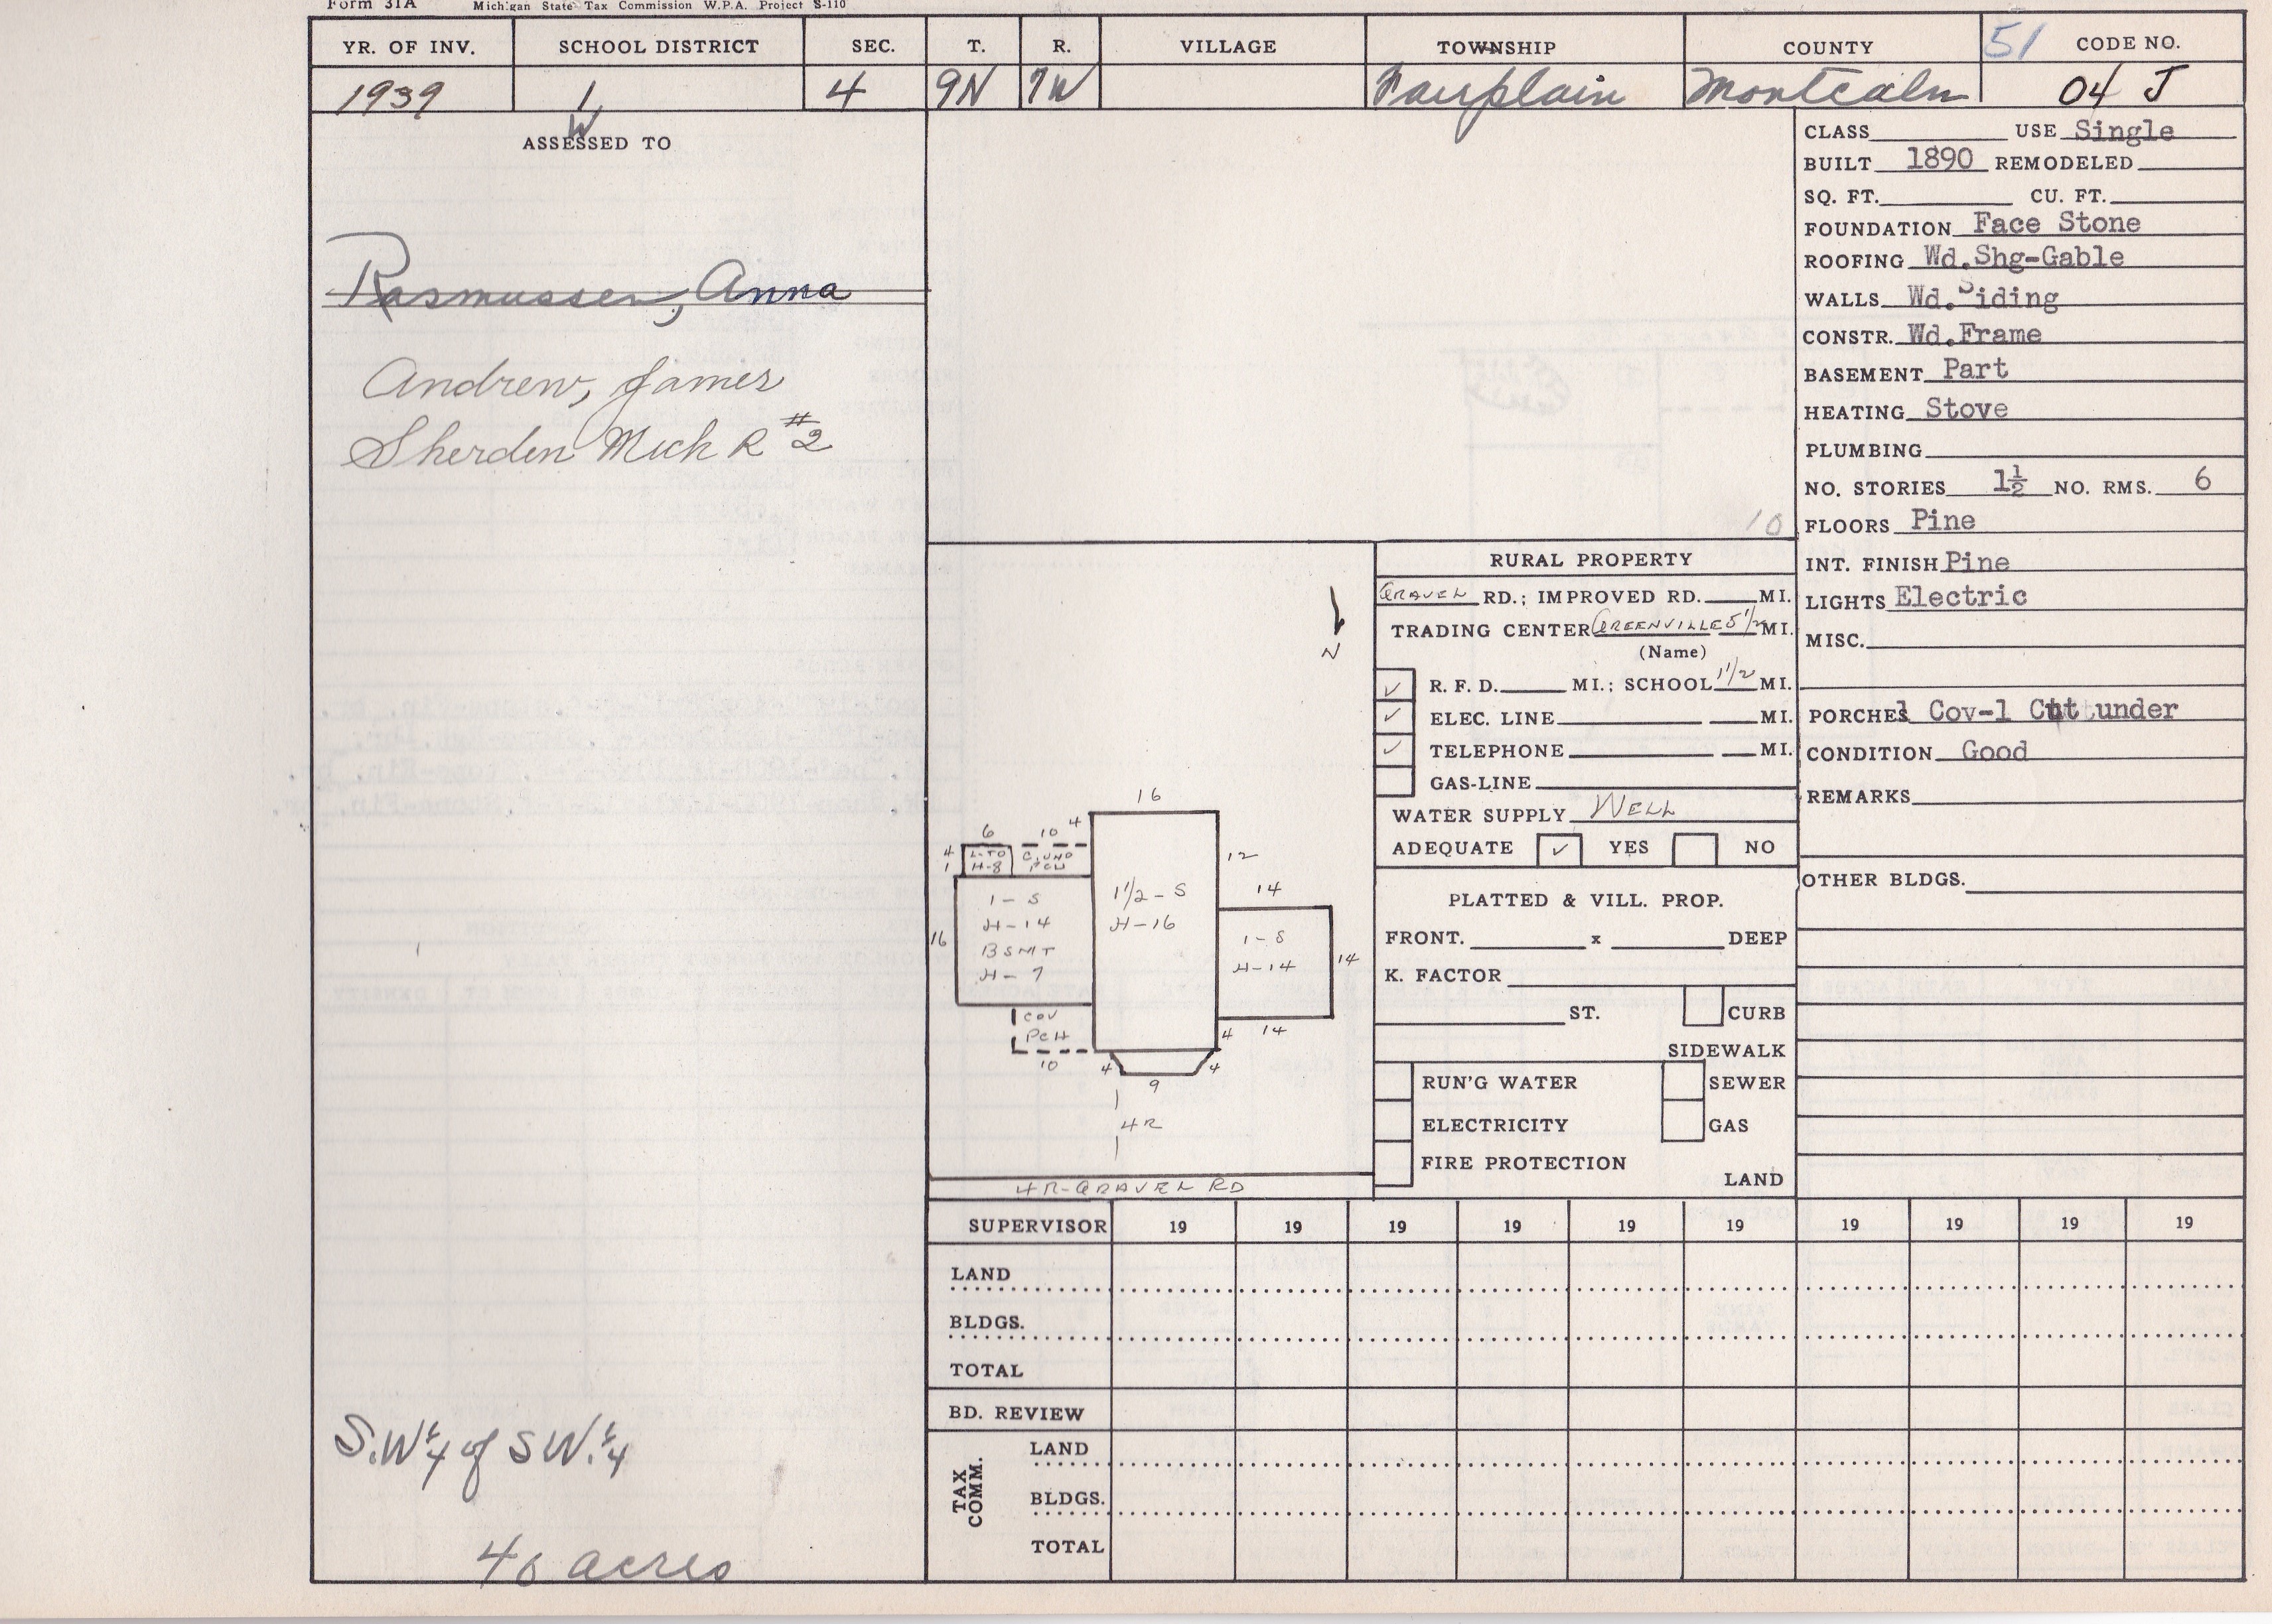 Form 31A Michigan State Tax Commission W.P.A. Project S-110
YR. OF INV. SCHOOL DISTRICT SEC. T. R. VILLAGE TOWNSHIP COUNTY 51 CODE NO.
1939 1 4 9N 7W Fairplain Montcalm 04 J
W
ASSESSED TO
Rasmussen, Anna
Andrew, James
Sherden Mich R #2
S.W¼ of SW.¼
40 acres
10
N
16
6 10 4
4 L-TO C. UND
1 H-8 PCH
12
14
1-S
H-14
BSMT
H-7
16
1 1/2-S
H-16
1-S
H-14
14
COV
PCH
10
4 14
4 9 4
4R
4R-GRAVEL RD
RURAL PROPERTY
GRAVEL RD.; IMPROVED RD. MI.
TRADING CENTER GREENVILLE 5 1/2 MI.
(Name)
✓ R. F. D. MI.; SCHOOL 1 1/2 MI.
✓ ELEC. LINE MI.
✓ TELEPHONE MI.
GAS-LINE
WATER SUPPLY WELL
ADEQUATE ✓ YES NO
PLATTED & VILL. PROP.
FRONT. x DEEP
K. FACTOR
ST. CURB
SIDEWALK
RUN'G WATER SEWER
ELECTRICITY GAS
FIRE PROTECTION
LAND
CLASS USE Single
BUILT 1890 REMODELED
SQ. FT. CU. FT.
FOUNDATION Face Stone
ROOFING Wd.Shg-Gable
WALLS Wd.Siding
CONSTR. Wd.Frame
BASEMENT Part
HEATING Stove
PLUMBING
NO. STORIES 1½ NO. RMS. 6
FLOORS Pine
INT. FINISH Pine
LIGHTS Electric
MISC.
PORCHES 1 Cov-1 Cut under
CONDITION Good
REMARKS
OTHER BLDGS.
SUPERVISOR 19 19 19 19 19 19 19 19 19 19
LAND
BLDGS.
TOTAL
BD. REVIEW
TAX COMM.
LAND
BLDGS.
TOTAL